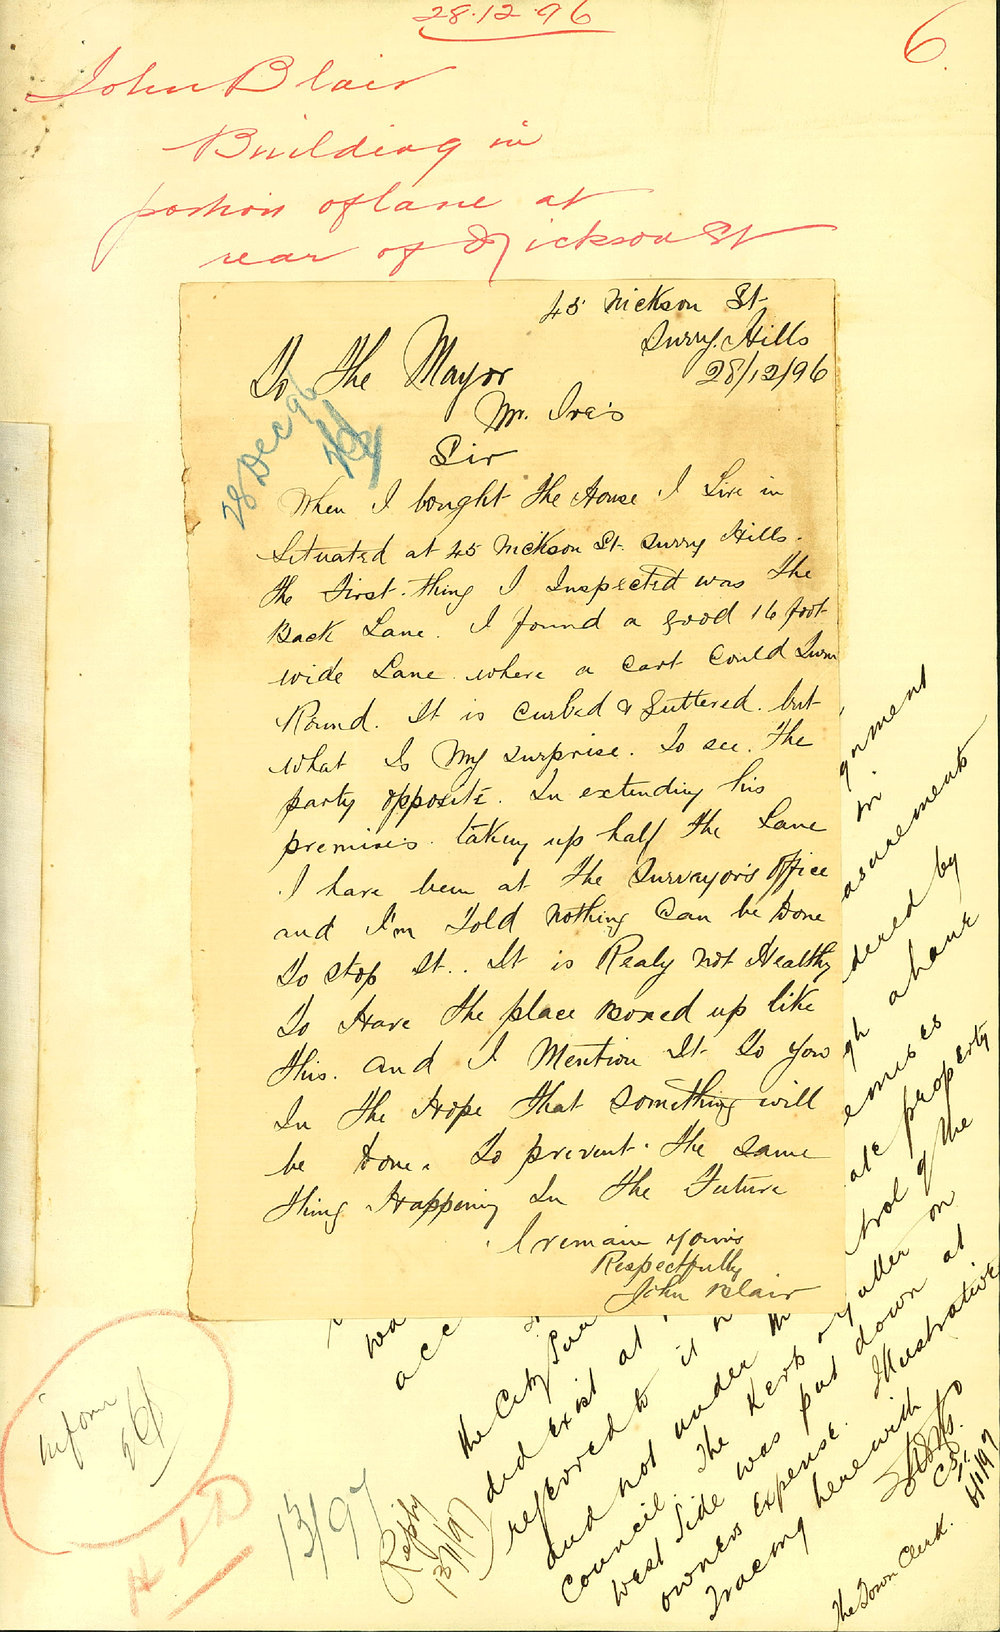 28.12.96
6.
John Blair
Building in
portion of lane at
rear of Nickson St
45 Nickson St
Surry Hills
28/12/96
To The Mayor
Mr. Ives
Sir
28 Dec 96
When I bought The House I Live in
Situated at 45 Nickson St. Surry Hills.
the First thing I Inspected was the
Back Lane. I found a good 16 foot
wide Lane where a Cart Could Turn
Round. It is Curbed & Guttered. but
what Is My Surprise. To see. The
party opposite. In extending his
premises taking up half the Lane
I have been at the Surveyor's Office
and I'm Told Nothing Can be Done
To Stop It.. It is Realy Not Healthy
To Have the place Boxed up like
this. and I Mention It To you
In the Hope that Something will
be Done. To prevent the same
thing Happening In the Future
I remain yours
Respectfully
John Blair
gnment
in
asurements
dered by
gh a have
emises
ate property
trol of the
acc
the City Sur
did exist at
referred to it
and not under th
Council. The Kerb & gutter on
West Side was put down at
owners expense. Illustrative
Tracing herewith
C.S.
6/1/97
The Town Clerk.
Inform
13/97
Reply
13/1/97